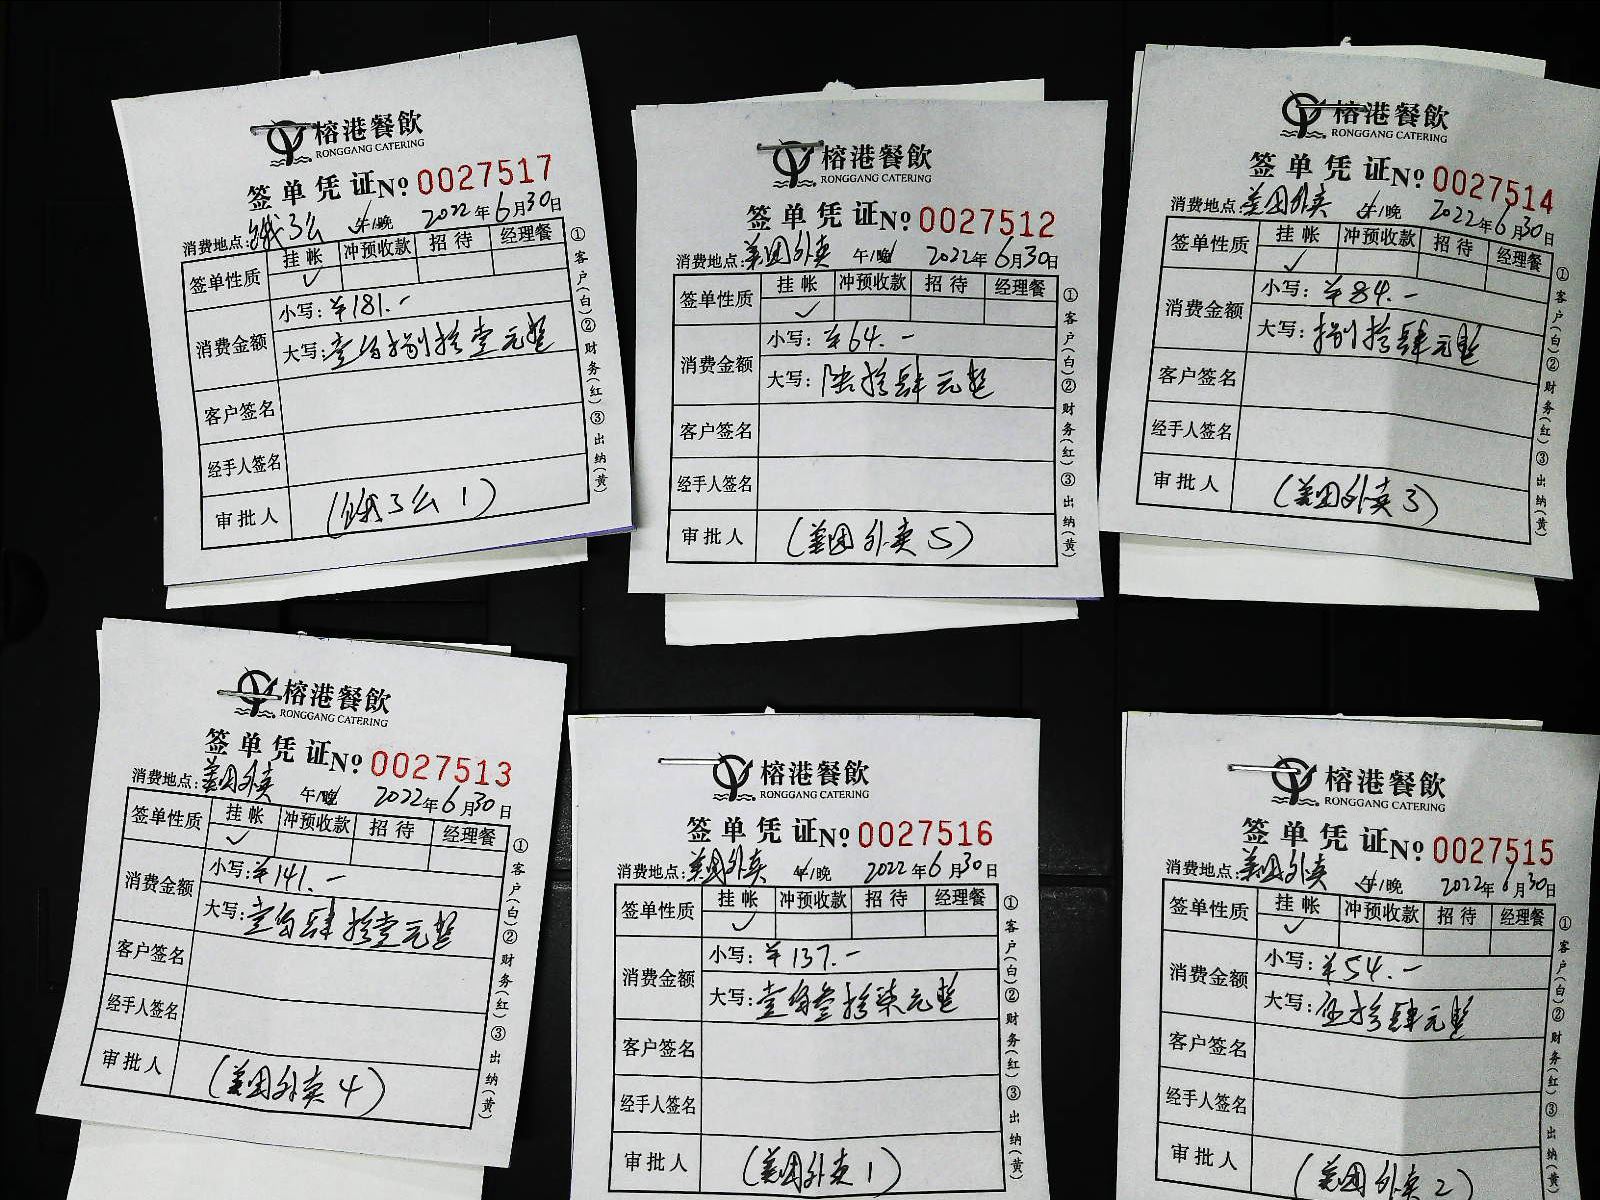 榕港餐飲
RONGGANG CATERING
签单凭证 No 0027517
消费地点:饿了么 午/晚 2022年6月30日
签单性质 挂帐 冲预收款 招待 经理餐
✓
消费金额 小写:¥181.-
大写:壹佰捌拾壹元整
客户签名
经手人签名
审批人 (饿了么1)
①客户(白)②财务(红)③出纳(黄)
榕港餐飲
RONGGANG CATERING
签单凭证 No 0027512
消费地点:美团外卖 午/晚 2022年6月30日
签单性质 挂帐 冲预收款 招待 经理餐
✓
消费金额 小写:¥64.-
大写:陆拾肆元整
客户签名
经手人签名
审批人 (美团外卖5)
①客户(白)②财务(红)③出纳(黄)
榕港餐飲
RONGGANG CATERING
签单凭证 No 0027514
消费地点:美团外卖 午/晚 2022年6月30日
签单性质 挂帐 冲预收款 招待 经理餐
✓
消费金额 小写:¥84.-
大写:捌拾肆元整
客户签名
经手人签名
审批人 (美团外卖3)
①客户(白)②财务(红)③出纳(黄)
榕港餐飲
RONGGANG CATERING
签单凭证 No 0027513
消费地点:美团外卖 午/晚 2022年6月30日
签单性质 挂帐 冲预收款 招待 经理餐
✓
消费金额 小写:¥141.-
大写:壹佰肆拾壹元整
客户签名
经手人签名
审批人 (美团外卖4)
①客户(白)②财务(红)③出纳(黄)
榕港餐飲
RONGGANG CATERING
签单凭证 No 0027516
消费地点:美团外卖 午/晚 2022年6月30日
签单性质 挂帐 冲预收款 招待 经理餐
✓
消费金额 小写:¥137.-
大写:壹佰叁拾柒元整
客户签名
经手人签名
审批人 (美团外卖1)
①客户(白)②财务(红)③出纳(黄)
榕港餐飲
RONGGANG CATERING
签单凭证 No 0027515
消费地点:美团外卖 午/晚 2022年6月30日
签单性质 挂帐 冲预收款 招待 经理餐
✓
消费金额 小写:¥54.-
大写:伍拾肆元整
客户签名
经手人签名
审批人 (美团外卖2)
①客户(白)②财务(红)③出纳(黄)